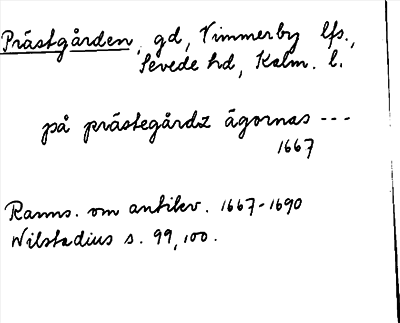 Prästgården, gd, Vimmerby lfs.,
Sevede hd, Kalm. l.
på prästegårdz ägornas ---
1667
Ranns. om antikv. 1667-1690
Wilstadius s. 99, 100.